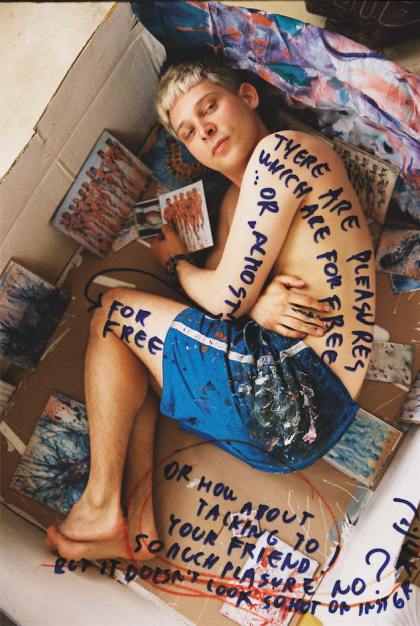 THERE ARE PLEASURES
WHICH ARE FOR FREE
... OR ALMOST
FOR
FREE
OR HOW ABOUT
TALKING TO
YOUR FRIEND
SO MUCH PLEASURE NO?
BUT IT DOESN'T LOOK SO HOT ON INSTGR